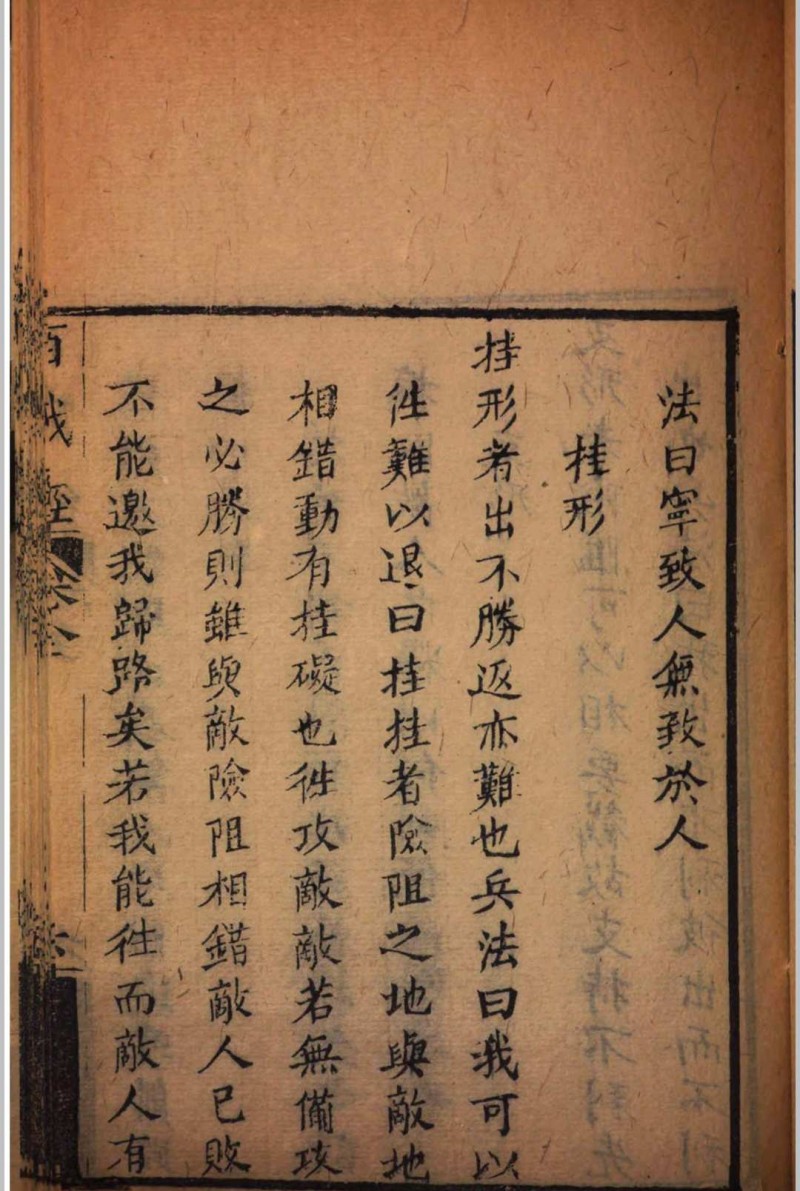 法曰寧致人無致於人
挂形
挂形者出不勝返亦難也兵法曰我可以
徃難以退曰挂挂者險阻之地與敵地
相錯動有挂礙也徃攻敵敵若無備攻
之必勝則雖與敵險阻相錯敵人已敗
不能邀我歸路矣若我能徃而敵人有
百戰經